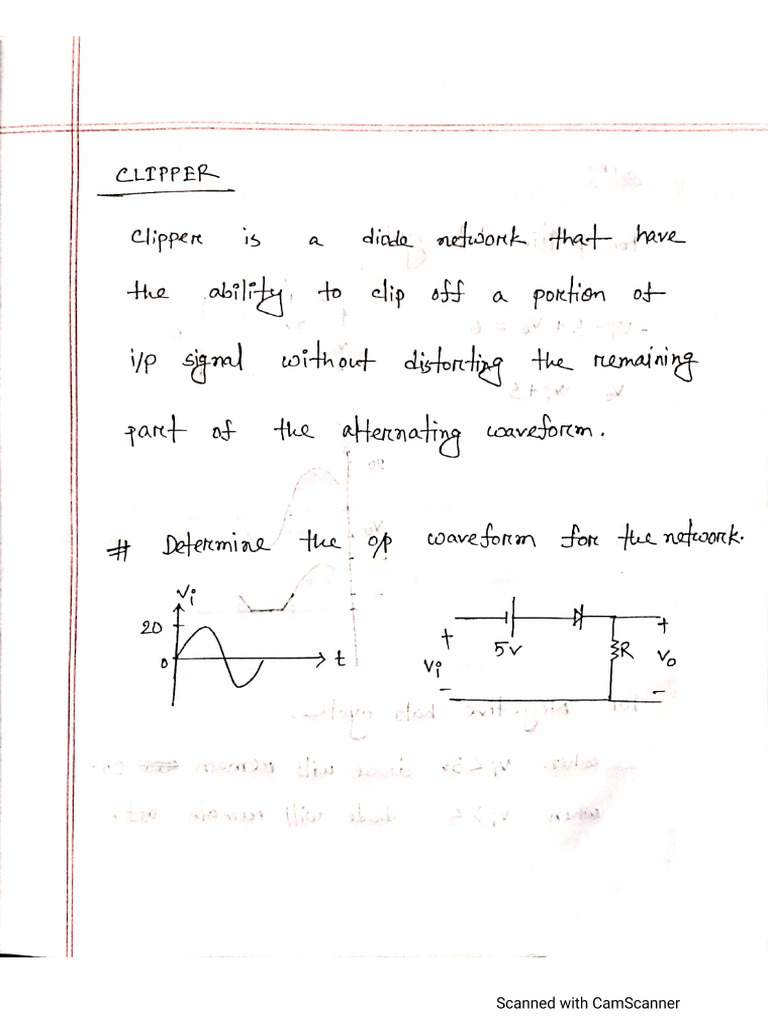 CLIPPER
Clipper is a diode network that have
the ability to clip off a portion of
i/p signal without distorting the remaining
part of the alternating waveform.
# Determine the o/p waveform for the network.
Vi
20
0
t
+
5V
R
+
Vi
Vo
-
-
Scanned with CamScanner